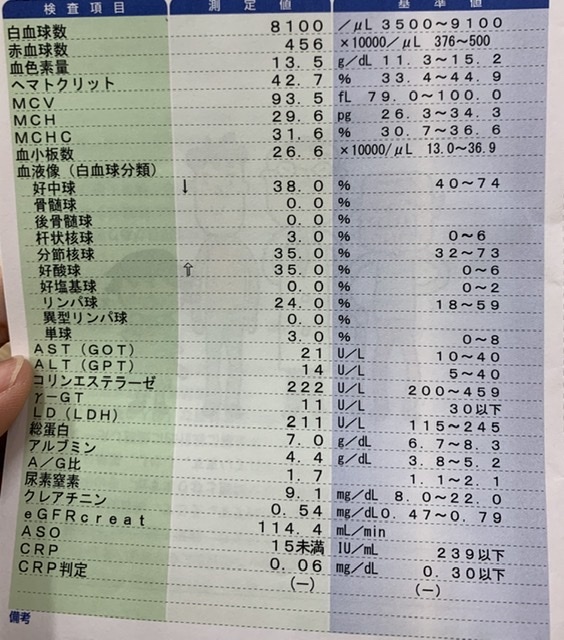 検査項目 測定値 基準値
白血球数 8100 /μL 3500~9100
赤血球数 456 ×10000/μL 376~500
血色素量 13.5 g/dL 11.3~15.2
ヘマトクリット 42.7 % 33.4~44.9
MCV 93.5 fL 79.0~100.0
MCH 29.6 pg 26.3~34.3
MCHC 31.6 % 30.7~36.6
血小板数 26.6 ×10000/μL 13.0~36.9
血液像(白血球分類)
好中球 ↓ 38.0 % 40~74
骨髄球 0.0 %
後骨髄球 0.0 %
杆状核球 3.0 % 0~6
分節核球 35.0 % 32~73
好酸球 ⇧ 35.0 % 0~6
好塩基球 0.0 % 0~2
リンパ球 24.0 % 18~59
異型リンパ球 0.0 %
単球 3.0 % 0~8
AST(GOT) 21 U/L 10~40
ALT(GPT) 14 U/L 5~40
コリンエステラーゼ 222 U/L 200~459
γ-GT 11 U/L 30以下
LD(LDH) 211 U/L 115~245
総蛋白 7.0 g/dL 6.7~8.3
アルブミン 4.4 g/dL 3.8~5.2
A/G比 1.7 1.1~2.1
尿素窒素 9.1 mg/dL 8.0~22.0
クレアチニン 0.54 mg/dL 0.47~0.79
eGFRcreat 114.4 mL/min
ASO 15未満 IU/mL 239以下
CRP 0.06 mg/dL 0.30以下
CRP判定 (-) (-)
備考